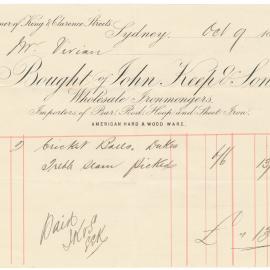 ner of King & Clarence Streets
Sydney, Oct 9
Mr. Vivian
Bought of John Keep & Son
Wholesale Ironmongers,
Importers of Bar, Rod, Hoop and Sheet Iron.
AMERICAN HARD & WOOD WARE.
2 Cricket Balls. Dukes
Treble Seam Picked 6/6 13
Paid
£ " 13